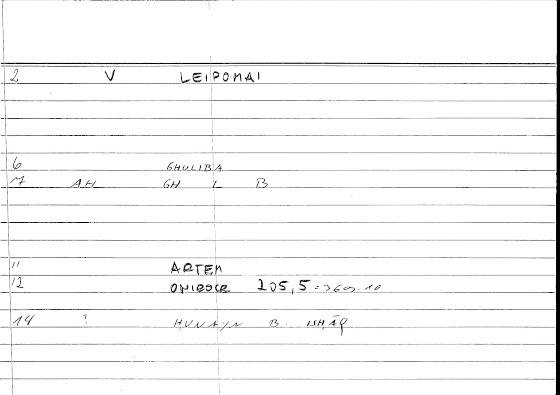 2 V LEIPOMAI
6 GHULIBA
7 AH GH L B
11 ARTEM
12 ONIROCR 205,5 = 369.10
14 ? HUNAIN B. ISHĀQ